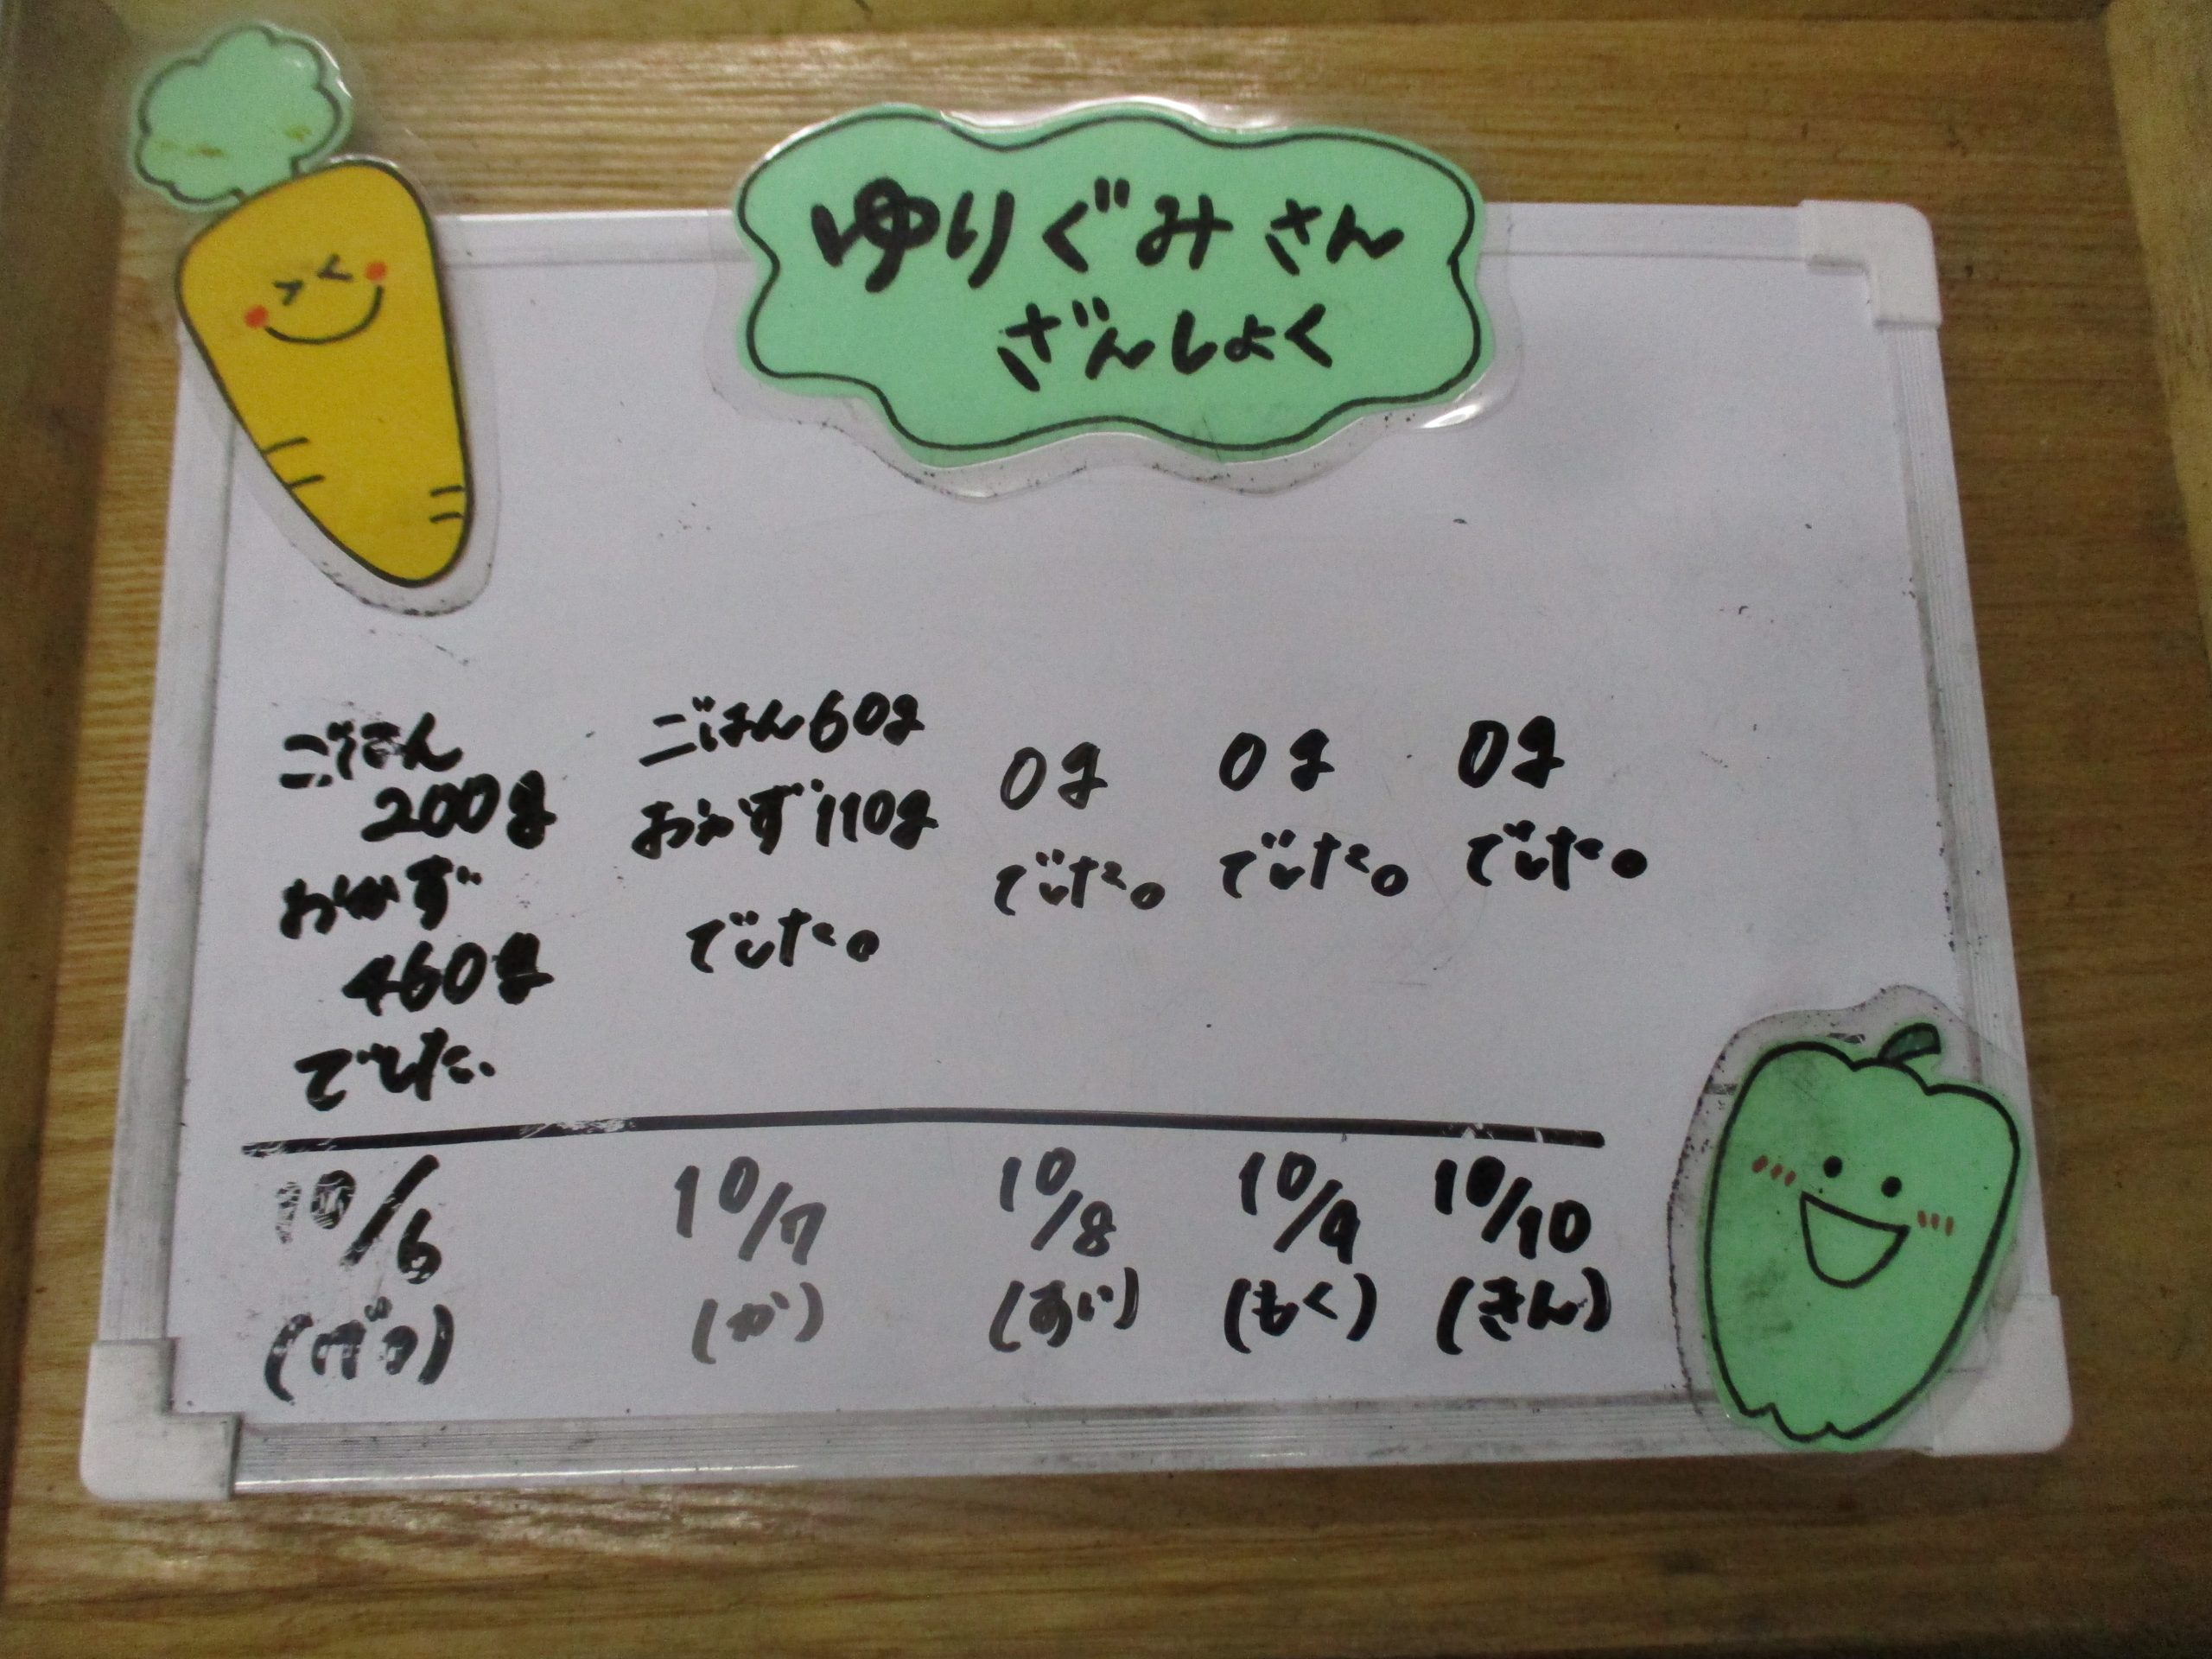 ゆりぐみさん
ざんしょく
ごはん
200g
おかず
460g
でした。
ごはん60g
おかず110g
でした。
0g
でした。
0g
でした。
0g
でした。
10/6
(げつ)
10/7
(か)
10/8
(すい)
10/9
(もく)
10/10
(きん)